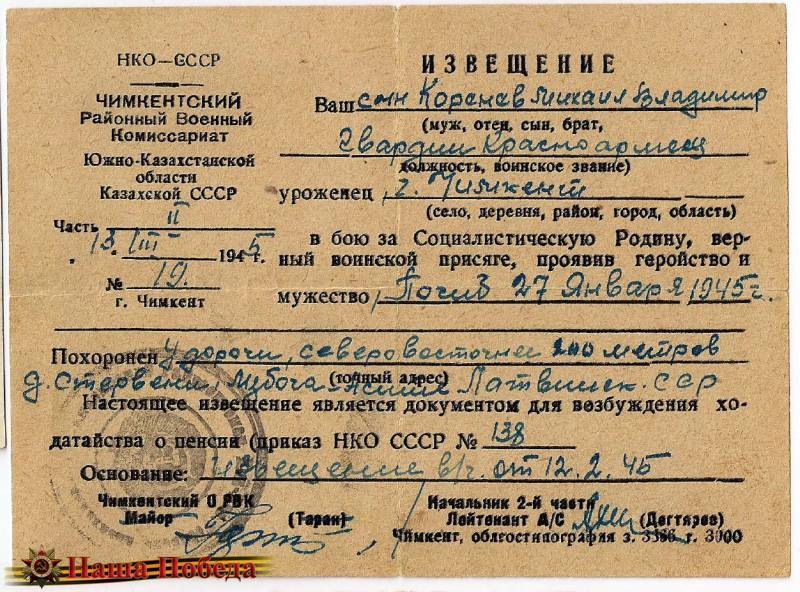 НКО—СССР
ЧИМКЕНТСКИЙ
Районный Военный
Комиссариат
Южно-Казахстанской
области
Казахской СССР
Часть II
13. III 1945 г.
№ 19.
г. Чимкент
ИЗВЕЩЕНИЕ
Ваш сын Коренев Михаил Владимир
(муж, отец, сын, брат,
Гвардии Красноармеец
должность, воинское звание)
уроженец г. Чимкент
(село, деревня, район, город, область)
в бою за Социалистическую Родину, вер-
ный воинской присяге, проявив геройство и
мужество, Погиб 27 Января 1945 г.
Похоронен У дороги, северовосточнее 200 метров
(точный адрес)
д. Латвийск. ССР
Настоящее извещение является документом для возбуждения хо-
датайства о пенсии (приказ НКО СССР № 138
Основание: Извещение в/ч. от 12.2.45
Чимкентский О РВК
Майор (Таран)
Начальник 2-й части
Лейтенант А/С (Дегтярев)
Чимкент, облгостипография з. 3386 г. 3000
Наша Победа